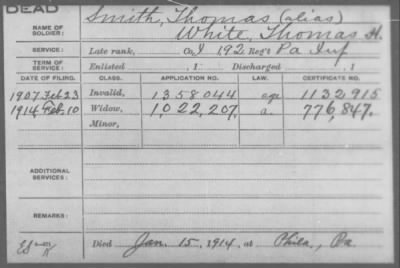 DEAD
NAME OF SOLDIER: Smith, Thomas (alias)
White, Thomas H.
SERVICE: Late rank, Co. I 192 Reg't Pa Inf
TERM OF SERVICE: Enlisted , 1 Discharged , 1
DATE OF FILING. CLASS. APPLICATION NO. LAW. CERTIFICATE NO.
1907 Feb 23 Invalid, 1358044 age 1132915
1914, Feb, 10 Widow, 1,022,207, a. 776,847.
Minor,
ADDITIONAL SERVICES:
REMARKS:
Died Jan. 15, 1914, at Phila., Pa